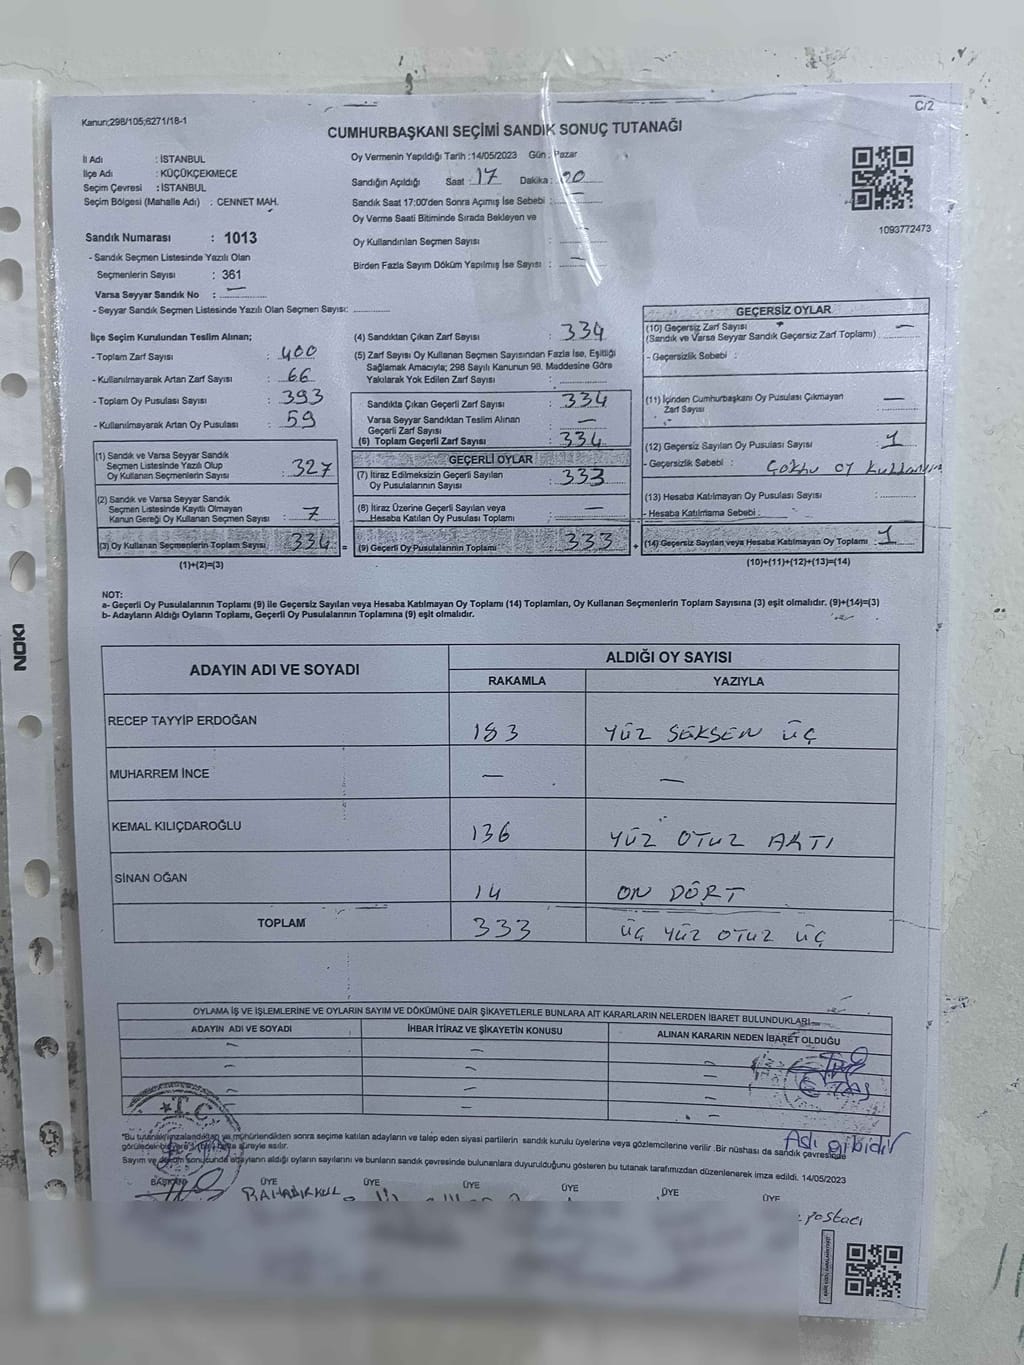 C/2
Kanun;298/105;6271/18-1
CUMHURBAŞKANI SEÇİMİ SANDIK SONUÇ TUTANAĞI
İl Adı : İSTANBUL
İlçe Adı : KÜÇÜKÇEKMECE
Seçim Çevresi : İSTANBUL
Seçim Bölgesi (Mahalle Adı) : CENNET MAH.
Sandık Numarası : 1013
- Sandık Seçmen Listesinde Yazılı Olan
Seçmenlerin Sayısı : 361
Varsa Seyyar Sandık No : —
- Seyyar Sandık Seçmen Listesinde Yazılı Olan Seçmen Sayısı:
Oy Vermenin Yapıldığı Tarih :14/05/2023 Gün : Pazar
Sandığın Açıldığı Saat : 17 Dakika : 00
Sandık Saat 17:00'den Sonra Açımış İse Sebebi : —
Oy Verme Saati Bitiminde Sırada Bekleyen ve
Oy Kullandırılan Seçmen Sayısı : —
Birden Fazla Sayım Döküm Yapılmış İse Sayısı : —
1093772473
İlçe Seçim Kurulundan Teslim Alınan;
- Toplam Zarf Sayısı : 400
- Kullanılmayarak Artan Zarf Sayısı : 66
- Toplam Oy Pusulası Sayısı : 393
- Kullanılmayarak Artan Oy Pusulası : 59
(1) Sandık ve Varsa Seyyar Sandık
Seçmen Listesinde Yazılı Olup
Oy Kullanan Seçmenlerin Sayısı : 327
(2) Sandık ve Varsa Seyyar Sandık
Seçmen Listesinde Kayıtlı Olmayan
Kanun Gereği Oy Kullanan Seçmen Sayısı : 7
(3) Oy Kullanan Seçmenlerin Toplam Sayısı : 334 =
(1)+(2)=(3)
(4) Sandıktan Çıkan Zarf Sayısı : 334
(5) Zarf Sayısı Oy Kullanan Seçmen Sayısından Fazla İse, Eşitliği
Sağlamak Amacıyla; 298 Sayılı Kanunun 98. Maddesine Göre
Yakılarak Yok Edilen Zarf Sayısı :
Sandıkta Çıkan Geçerli Zarf Sayısı : 334
Varsa Seyyar Sandıktan Teslim Alınan
Geçerli Zarf Sayısı : —
(6) Toplam Geçerli Zarf Sayısı : 334
GEÇERLİ OYLAR
(7) İtiraz Edilmeksizin Geçerli Sayılan
Oy Pusulalarının Sayısı : 333
(8) İtiraz Üzerine Geçerli Sayılan veya
Hesaba Katılan Oy Pusulası Toplamı : —
(9) Geçerli Oy Pusulalarının Toplamı : 333 +
GEÇERSİZ OYLAR
(10) Geçersiz Zarf Sayısı : —
(Sandık ve Varsa Seyyar Sandık Geçersiz Zarf Toplamı)
- Geçersizlik Sebebi :
(11) İçinden Cumhurbaşkanı Oy Pusulası Çıkmayan
Zarf Sayısı : —
(12) Geçersiz Sayılan Oy Pusulası Sayısı : 1
- Geçersizlik Sebebi : Çoklu oy kullanım
(13) Hesaba Katılmayan Oy Pusulası Sayısı :
- Hesaba Katılmama Sebebi :
(14) Geçersiz Sayılan veya Hesaba Katılmayan Oy Toplamı : 1
(10)+(11)+(12)+(13)=(14)
NOT:
a- Geçerli Oy Pusulalarının Toplamı (9) ile Geçersiz Sayılan veya Hesaba Katılmayan Oy Toplamı (14) Toplamları, Oy Kullanan Seçmenlerin Toplam Sayısına (3) eşit olmalıdır. (9)+(14)=(3)
b- Adayların Aldığı Oyların Toplamı, Geçerli Oy Pusulalarının Toplamına (9) eşit olmalıdır.
ADAYIN ADI VE SOYADI ALDIĞI OY SAYISI
RAKAMLA YAZIYLA
RECEP TAYYİP ERDOĞAN 183 YÜZ SEKSEN ÜÇ
MUHARREM İNCE — —
KEMAL KILIÇDAROĞLU 136 YÜZ OTUZ ALTI
SİNAN OĞAN 14 ON DÖRT
TOPLAM 333 ÜÇ YÜZ OTUZ ÜÇ
OYLAMA İŞ VE İŞLEMLERİNE VE OYLARIN SAYIM VE DÖKÜMÜNE DAİR ŞİKAYETLERLE BUNLARA AİT KARARLARIN NELERDEN İBARET BULUNDUKLARI
ADAYIN ADI VE SOYADI İHBAR İTİRAZ VE ŞİKAYETİN KONUSU ALINAN KARARIN NEDEN İBARET OLDUĞU
T.C.
Aslı gibidir
*Bu tutanak imzalandıktan ve mühürlendikten sonra seçime katılan adayların ve talep eden siyasi partilerin sandık kurulu üyelerine veya gözlemcilerine verilir .Bir nüshası da sandık çevresinde
görülecek bir yere süreyle asılır.
Sayım ve döküm sonucunda adayların aldığı oyların sayılarını ve bunların sandık çevresinde bulunanlara duyurulduğunu gösteren bu tutanak tarafımızdan düzenlenerek imza edildi. 14/05/2023
BAŞKAN ÜYE ÜYE ÜYE ÜYE ÜYE ÜYE
BAHADIR KUL
Postacı
NOKI